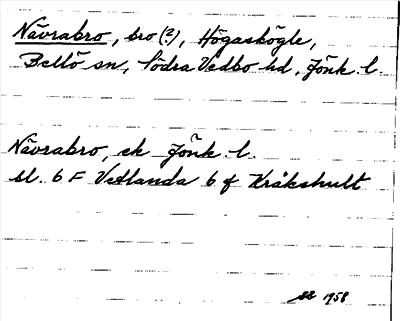 Nävrabro, bro (?), Högaskögle,
Bellö sn, Södra Vedbo hd, Jönk. l.
Nävrabro, ek Jönk. l.
bl. 6 F Vetlanda 6 f Kråkshult
SS 1958